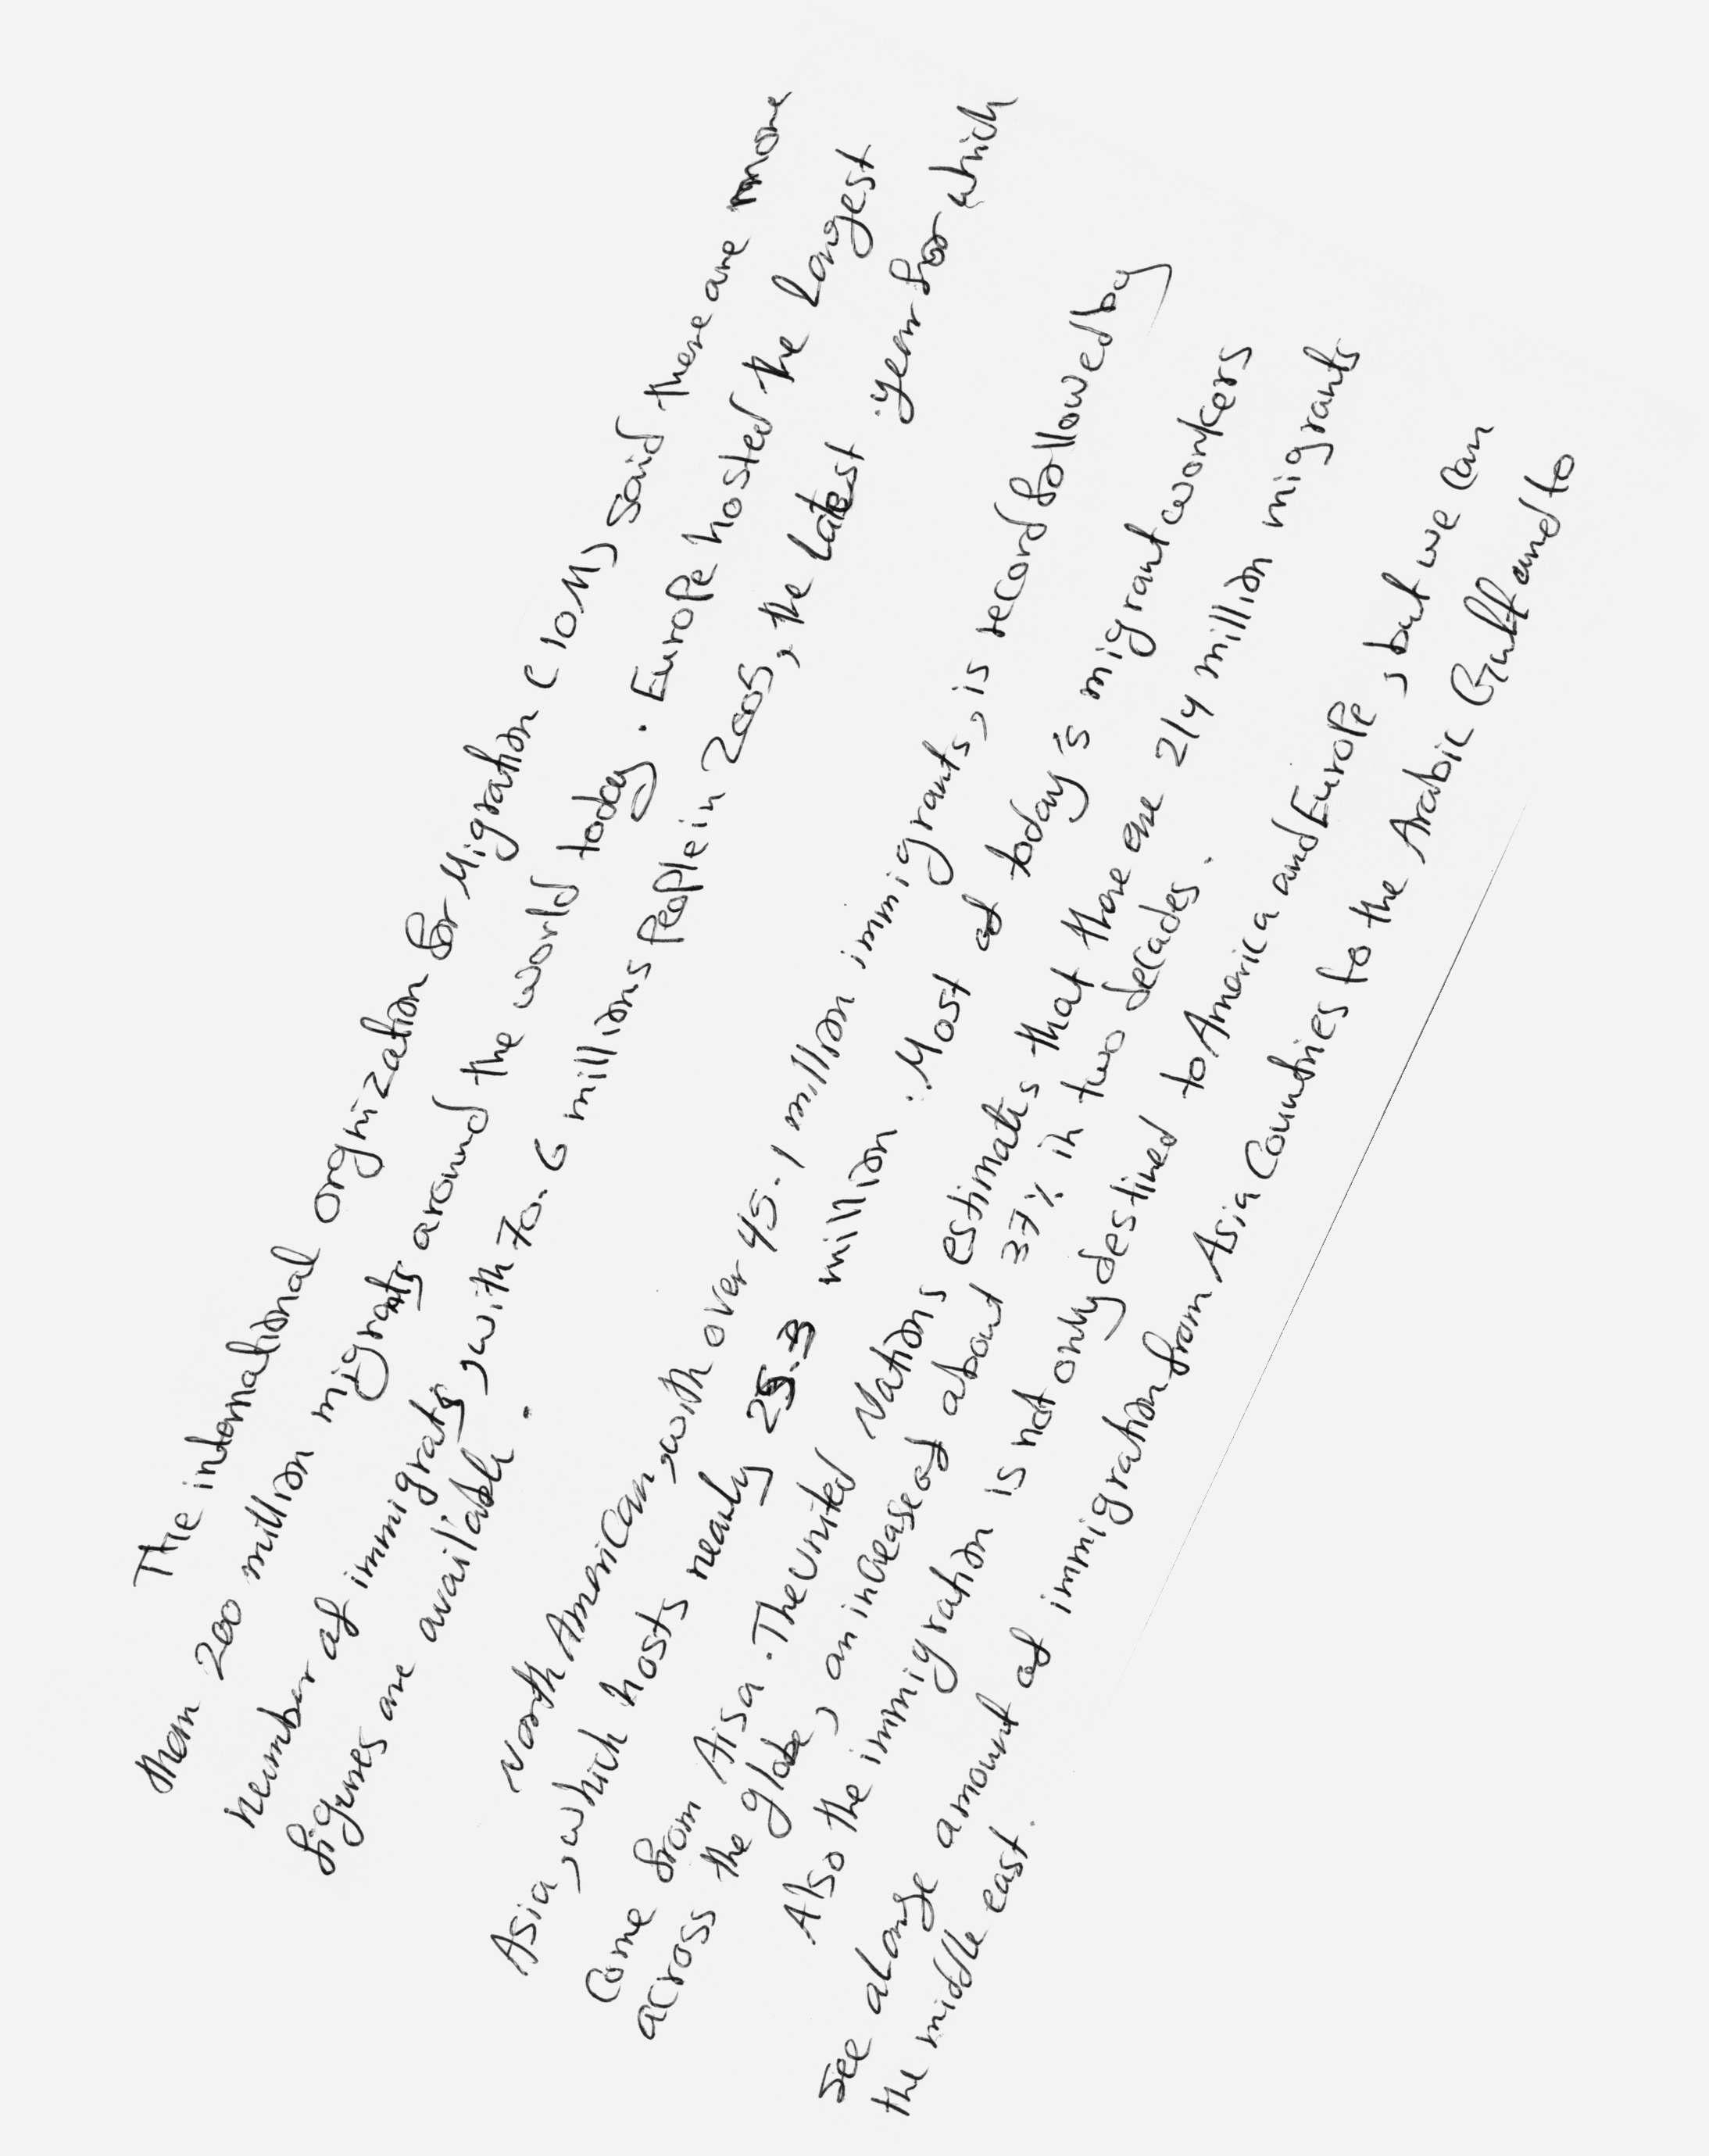 The international orgnization for Migration (IOM) said there are more
than 200 million migrants around the world today. Europe hosted the largest
number of immigrats, with 70.6 millions people in 2005, the latest year for which
figures are available.
North American, with over 45.1 million immigrants, is second followed by
Asia, which hosts nearly 25.3 million. Most of today's migrant workers
come from Aisa. The United Nations estimates that there are 214 million migrants
across the globe, an increase of about 37% in two decades.
Also the immigration is not only destined to America and Europe, but we can
see a large amount of immigration from Asia countries to the Arabic Gulf and to
the middle east.